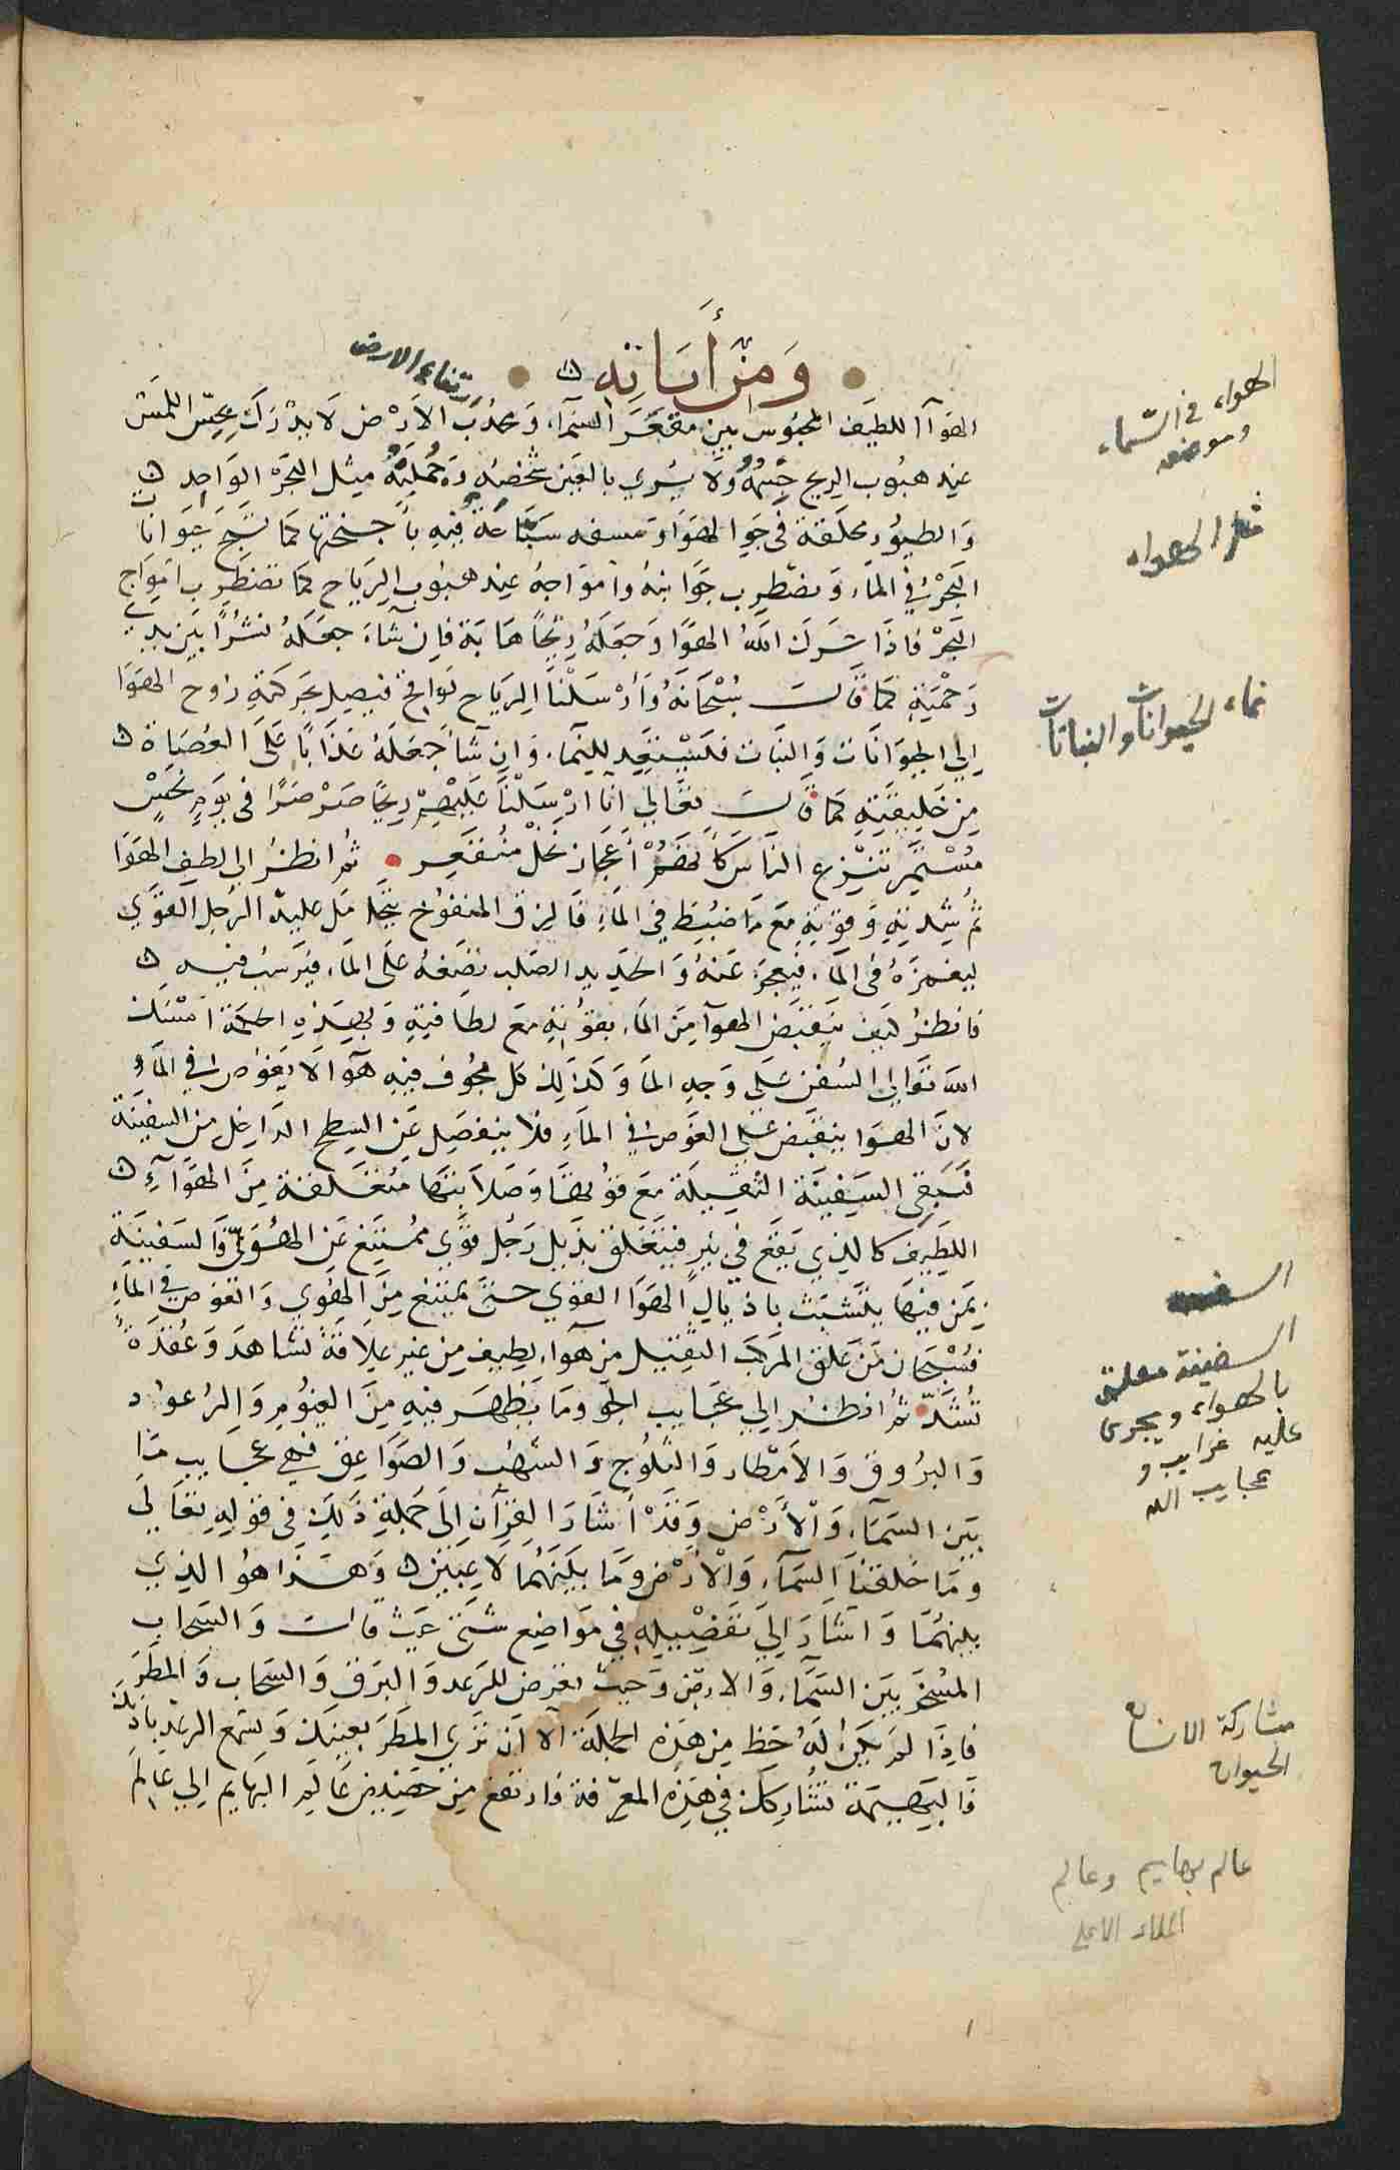 ومن أياته
ارتفاع الارض
الهوآ اللطيف المحبوس بين مقعر السمآء ومحدب الارض لا يدرك بحس اللمس
عند هبوب الريح جسمه ولا يري بالعين شخصه وجملته مثل البحر الواحد
والطيور محلقة في جو الهوا ومسفه سباحة فيه باجنحتها كما تسبح حيوانات
البحر في المآء وتضطرب جوانبه وامواجه عند هبوب الرياح كما تضطرب امواج
البحر فاذا حرك الله الهوا وجعله ريحا هابة فان شآء جعله نشرا بين يدي
رحمته كما قال سبحانه وارسلنا الرياح لواقح فيصل بحركته روح الهوا
الي الحيوانات والنبات فتستعد للنمآء وان شآ جعله عذابا على العصاة
من خليقته كما قال تعالي انا ارسلنا عليهم ريحا صرصرا في يوم نحس
مستمر تنزع الناس كأنهم أعجاز نخل منقعر ثم انظر الي لطف الهوا
ثم شدته وقوته مع ما ضبط في المآء فالزق المنفوخ يتحامل عليه الرجل القوي
ليغمزه في المآء فيعجز عنه والحديد الصلب تضعه على المآء فيرسب فيه
فانظر كيف ينقبض الهوآ من المآء بقوته مع لطافته وبهذه الحكمة امسك
الله تعالي السفن على وجه المآ وكذلك كل مجوف فيه هوآ لا يغوص في المآء
لان الهوا ينقبض على الغوص في المآء فلا ينفصل عن السطح الداخل من السفينة
فتبقى السفينة الثقيلة مع قوتها وصلابتها متعلقة من الهوآء
اللطيف كالذي يقع في بئر فيتعلق بذيل رجل قوي ممتنع عن الهوي والسفينة
بمن فيها يتشبث باذيال الهوا القوي حتي يمتنع من الهوي والغوص في المآء
فسبحان من علق المركب الثقيل من هوآء لطيف من غير علاقة تشاهد وعقدة
تشد ثم انظر الي عجايب الجو وما يظهر فيه من الغيوم والرعود
والبروق والامطار والثلوج والشهب والصواعق فهي عجايب ما
بين السمآء والأرض وقد أشار القرآن الى جملة ذلك في قوله تعالى
وما خلقنا السمآء والارض وما بينهما لاعبين وهذا هو الذي
بينهما واشار الي تفصيله في مواضع شتى حيث قال والسحاب
المسخر بين السمآء والارض وحيث تعرض للرعد والبرق والسحاب والمطر
فاذا لم يكن له حظ من هذه الجملة الا ان تري المطر بعينك وتسمع الرعد باذنك
فالبهيمة تشاركك في هذه المعرفة فارتفع من حضيض عالم البهايم الي عالم
الهواء في السماء
وموضعه
الهواء
نماء الحيوانات والنباتات
السفينة معلق
بالهواء ويجرى
عليه غرايب و
عجايب الله
مشاركة الانسان
الحيوان
عالم بهايم وعالم
الملاء الاعلى